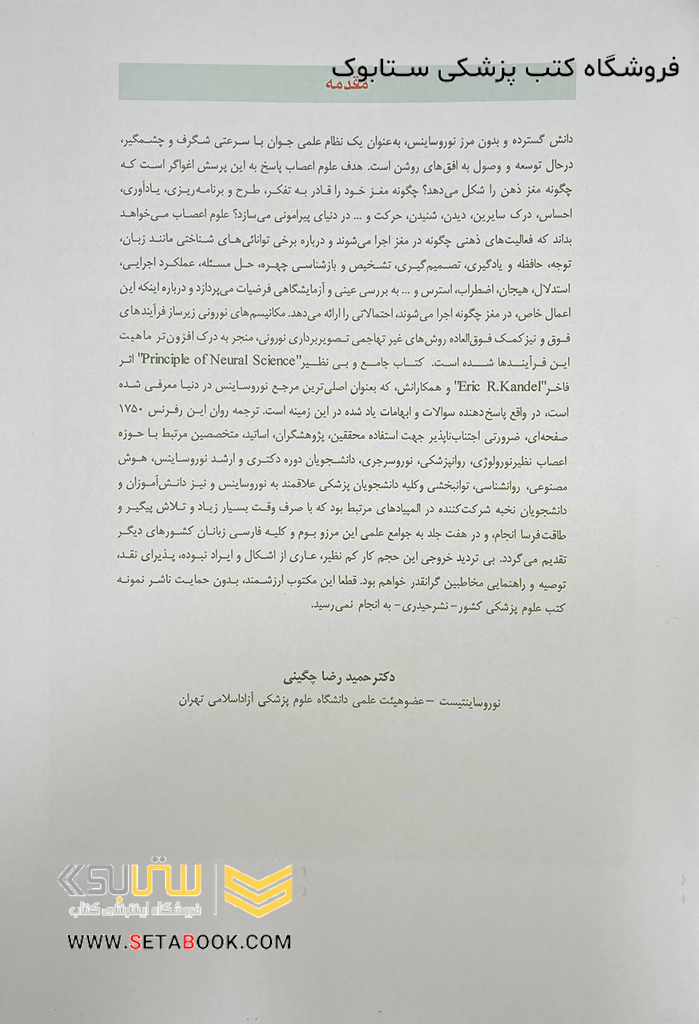 فروشگاه کتب پزشکی ستابوک
مقدمه
دانش گسترده و بدون مرز نوروساینس، به‌عنوان یک نظام علمی جوان با سرعتی شگرف و چشمگیر،
درحال توسعه و وصول به افق‌های روشن است. هدف علوم اعصاب پاسخ به این پرسش اغواگر است که
چگونه مغز ذهن را شکل می‌دهد؟ چگونه مغز خود را قادر به تفکر، طرح و برنامه‌ریزی، یادآوری،
احساس، درک سایرین، دیدن، شنیدن، حرکت و ... در دنیای پیرامونی می‌سازد؟ علوم اعصاب می‌خواهد
بداند که فعالیت‌های ذهنی چگونه در مغز اجرا می‌شوند و درباره برخی توانائی‌های شناختی مانند زبان،
توجه، حافظه و یادگیری، تصمیم‌گیری، تشخیص و بازشناسی چهره، حل مسئله، عملکرد اجرایی،
استدلال، هیجان، اضطراب، استرس و ... به بررسی عینی و آزمایشگاهی فرضیات می‌پردازد و درباره اینکه این
اعمال خاص، در مغز چگونه اجرا می‌شوند، احتمالاتی را ارائه می‌دهد. مکانیسم‌های نورونی زیرساز فرآیندهای
فوق و نیز کمک فوق‌العاده روش‌های غیر تهاجمی تصویربرداری نورونی، منجر به درک افزون‌تر ماهیت
این فرآیندها شده است. کتاب جامع و بی نظیر"Principle of Neural Science" اثر
فاخر"Eric R.Kandel" و همکارانش، که بعنوان اصلی‌ترین مرجع نوروساینس در دنیا معرفی شده
است، در واقع پاسخ‌دهنده سوالات و ابهامات یاد شده در این زمینه است. ترجمه روان این رفرنس ۱۷۵۰
صفحه‌ای، ضرورتی اجتناب‌ناپذیر جهت استفاده محققین، پژوهشگران، اساتید، متخصصین مرتبط با حوزه
اعصاب نظیرنورولوژی، روانپزشکی، نوروسرجری، دانشجویان دوره دکتری و ارشد نوروساینس، هوش
مصنوعی، روانشناسی، توانبخشی وکلیه دانشجویان پزشکی علاقمند به نوروساینس و نیز دانش‌آموزان و
دانشجویان نخبه شرکت‌کننده در المپیادهای مرتبط بود که با صرف وقت بسیار زیاد و تلاش پیگیر و
طاقت‌فرسا انجام، و در هفت جلد به جوامع علمی این مرزو بوم و کلیه فارسی زبانان کشورهای دیگر
تقدیم می‌گردد. بی تردید خروجی این حجم کار کم نظیر، عاری از اشکال و ایراد نبوده، پذیرای نقد،
توصیه و راهنمایی مخاطبین گرانقدر خواهم بود. قطعا این مکتوب ارزشمند، بدون حمایت ناشر نمونه
کتب علوم پزشکی کشور- نشرحیدری- به انجام نمی‌رسید.
دکترحمید رضا چگینی
نوروساینتیست –عضوهیئت علمی دانشگاه علوم پزشکی آزاداسلامی تهران
ستابوک
فروشگاه اینترنتی کتاب
WWW.SETABOOK.COM